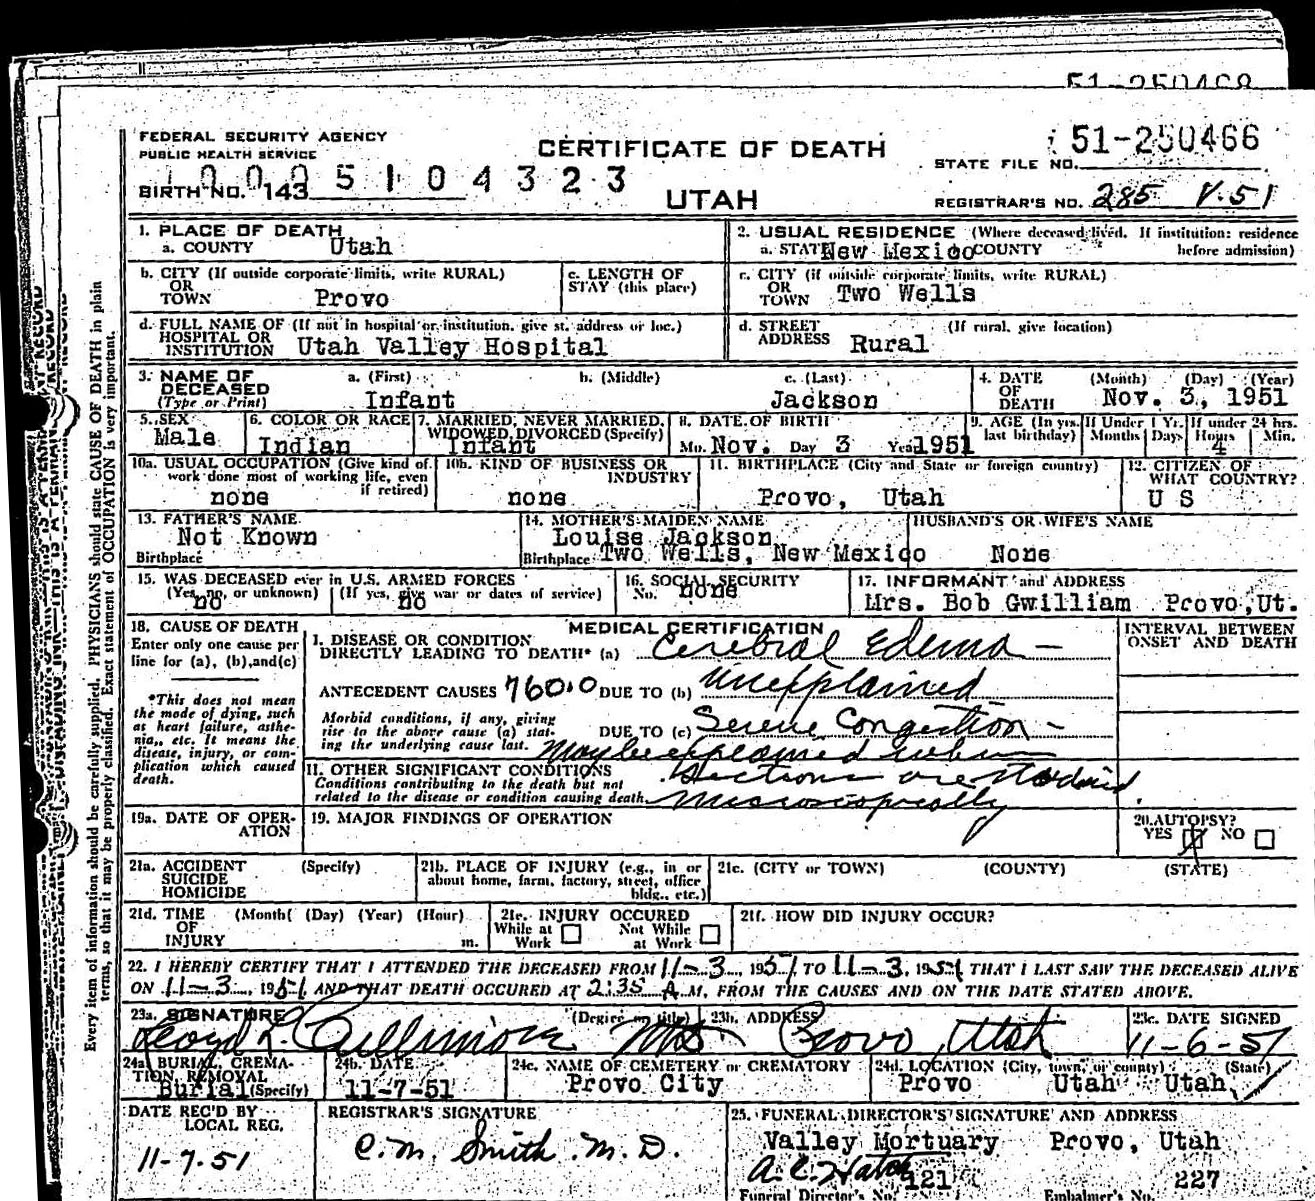 51-250468
FEDERAL SECURITY AGENCY
PUBLIC HEALTH SERVICE
CERTIFICATE OF DEATH
STATE FILE NO. 51-250466
BIRTH NO. 143 510 4323
UTAH
REGISTRAR'S NO. 285 V.51
1. PLACE OF DEATH
a. COUNTY Utah
2. USUAL RESIDENCE (Where deceased lived. If institution: residence before admission)
a. STATE New Mexico COUNTY
b. CITY (If outside corporate limits, write RURAL)
OR TOWN Provo
c. LENGTH OF STAY (this place)
c. CITY (if outside corporate limits, write RURAL)
OR TOWN Two Wells
d. FULL NAME OF (If not in hospital or institution, give st. address or loc.)
HOSPITAL OR INSTITUTION Utah Valley Hospital
d. STREET ADDRESS (If rural, give location)
Rural
3. NAME OF DECEASED (Type or Print)
a. (First) b. (Middle) c. (Last)
Infant Jackson
4. DATE OF DEATH (Month) (Day) (Year)
Nov. 3, 1951
5. SEX Male
6. COLOR OR RACE Indian
7. MARRIED, NEVER MARRIED, WIDOWED, DIVORCED (Specify) Infant
8. DATE OF BIRTH
Mo. Nov. Day 3 Year 1951
9. AGE (In yrs. last birthday) If Under 1 Yr. Months Days If under 24 hrs. Hours Min.
4
10a. USUAL OCCUPATION (Give kind of work done most of working life, even if retired)
none
10b. KIND OF BUSINESS OR INDUSTRY
none
11. BIRTHPLACE (City and State or foreign country)
Provo, Utah
12. CITIZEN OF WHAT COUNTRY?
U S
13. FATHER'S NAME
Not Known
Birthplace
14. MOTHER'S MAIDEN NAME
Louise Jackson
Birthplace Two Wells, New Mexico
HUSBAND'S OR WIFE'S NAME
None
15. WAS DECEASED ever in U.S. ARMED FORCES
(Yes, no, or unknown) (If yes, give war or dates of service)
no no
16. SOCIAL SECURITY No. none
17. INFORMANT and ADDRESS
Mrs. Bob Gwilliam Provo, Ut.
18. CAUSE OF DEATH
Enter only one cause per line for (a), (b), and (c)
*This does not mean the mode of dying, such as heart failure, asthenia, etc. It means the disease, injury, or complication which caused death.
MEDICAL CERTIFICATION
INTERVAL BETWEEN ONSET AND DEATH
I. DISEASE OR CONDITION DIRECTLY LEADING TO DEATH* (a) Cerebral Edema -
ANTECEDENT CAUSES 760.0 DUE TO (b) Unexplained
Morbid conditions, if any, giving rise to the above cause (a) stating the underlying cause last.
DUE TO (c) Severe Congestion -
May be explained when
II. OTHER SIGNIFICANT CONDITIONS
Conditions contributing to the death but not related to the disease or condition causing death.
Sections are studied
Microscopically
19a. DATE OF OPERATION
19. MAJOR FINDINGS OF OPERATION
20. AUTOPSY?
YES X NO
21a. ACCIDENT SUICIDE HOMICIDE (Specify)
21b. PLACE OF INJURY (e.g., in or about home, farm, factory, street, office bldg., etc.)
21c. (CITY or TOWN) (COUNTY) (STATE)
21d. TIME OF INJURY (Month) (Day) (Year) (Hour) m.
21e. INJURY OCCURED
While at Work Not While at Work
21f. HOW DID INJURY OCCUR?
22. I HEREBY CERTIFY THAT I ATTENDED THE DECEASED FROM 11-3, 1951 TO 11-3, 1951 THAT I LAST SAW THE DECEASED ALIVE
ON 11-3, 1951 AND THAT DEATH OCCURED AT 2:35 A.M. FROM THE CAUSES AND ON THE DATE STATED ABOVE.
23a. SIGNATURE (Degree or title) 23b. ADDRESS 23c. DATE SIGNED
Lloyd L. Cullimore MD Provo, Utah 11-6-51
24a BURIAL, CREMATION, REMOVAL (Specify) Burial
24b. DATE 11-7-51
24c. NAME OF CEMETERY or CREMATORY
Provo City
24d. LOCATION (City, town, or county) (State)
Provo Utah Utah
DATE REC'D BY LOCAL REG.
11-7-51
REGISTRAR'S SIGNATURE
C.M. Smith M.D.
25. FUNERAL DIRECTOR'S SIGNATURE AND ADDRESS
Valley Mortuary Provo, Utah
A.C. Hatch 121 227
Funeral Director's No. Embalmer's No.
Every item of information should be carefully supplied. PHYSICIANS should state CAUSE OF DEATH in plain
terms, so that it may be properly classified. Exact statement of OCCUPATION is very important.